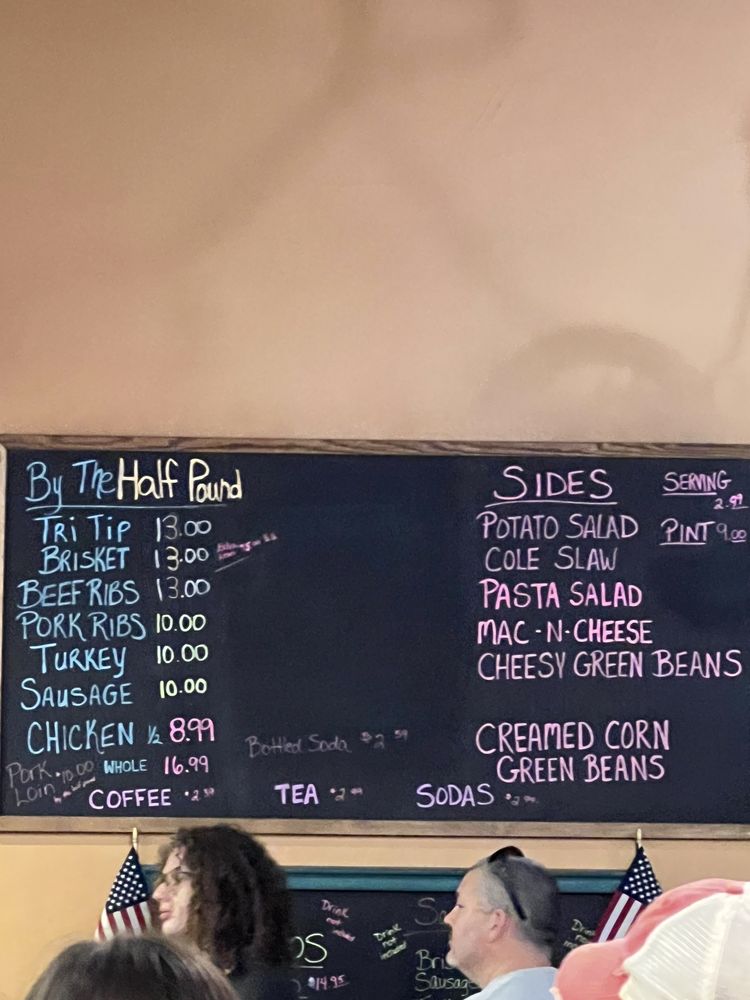 By The Half Pound
TRI TIP 13.00
BRISKET 13.00
BEEF RIBS 13.00
PORK RIBS 10.00
TURKEY 10.00
SAUSAGE 10.00
CHICKEN 1/2 8.99
WHOLE 16.99
Pork Loin 10.00
Bottled Soda $2 59
COFFEE
TEA
SODAS
SIDES
SERVING 2.99
PINT 9.00
POTATO SALAD
COLE SLAW
PASTA SALAD
MAC-N-CHEESE
CHEESY GREEN BEANS
CREAMED CORN
GREEN BEANS
Drink not included
$14.95
Drink not included
Sausage